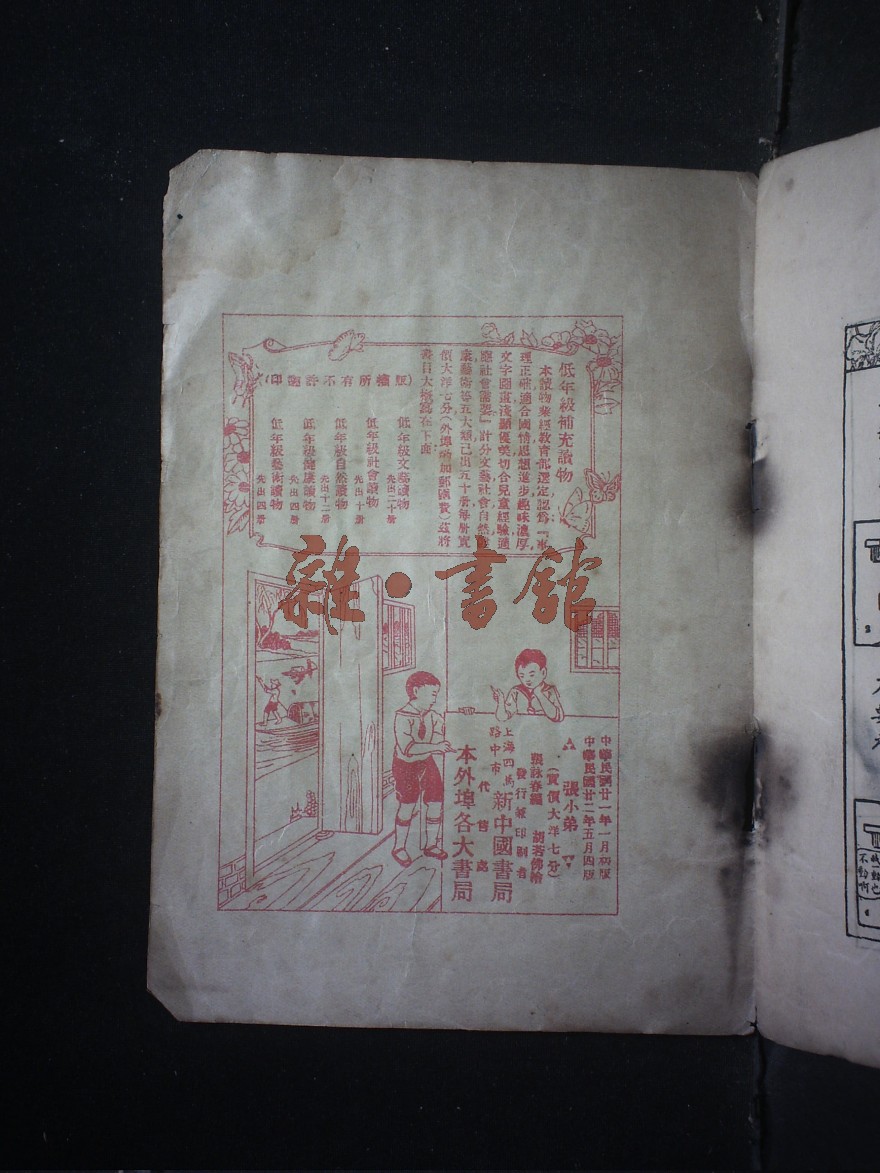 低年級補充讀物
本讀物業經教育部選定認爲「事
理正確適合國情思想進步趣味濃厚
文字圖畫淺顯優美切合兒童經驗適
應社會需要」計分文藝社會自然健
康藝術等五大類已出五十册每册實
價大洋七分(外埠酌加郵匯費)茲將
書目大概寫在下面:
低年級文藝讀物 先出二十册
低年級社會讀物 先出十册
低年級自然讀物 先出十二册
低年級健康讀物 先出四册
低年級藝術讀物 先出四册
(版權所有不許翻印)
雜·書館
中華民國廿一年一月初版
中華民國廿二年五月四版
張小弟
(實價大洋七分)
張詠春編 胡若佛繪
發行兼印刷者
上海四馬路中市 新中國書局
代售處
本外埠各大書局
不動啊